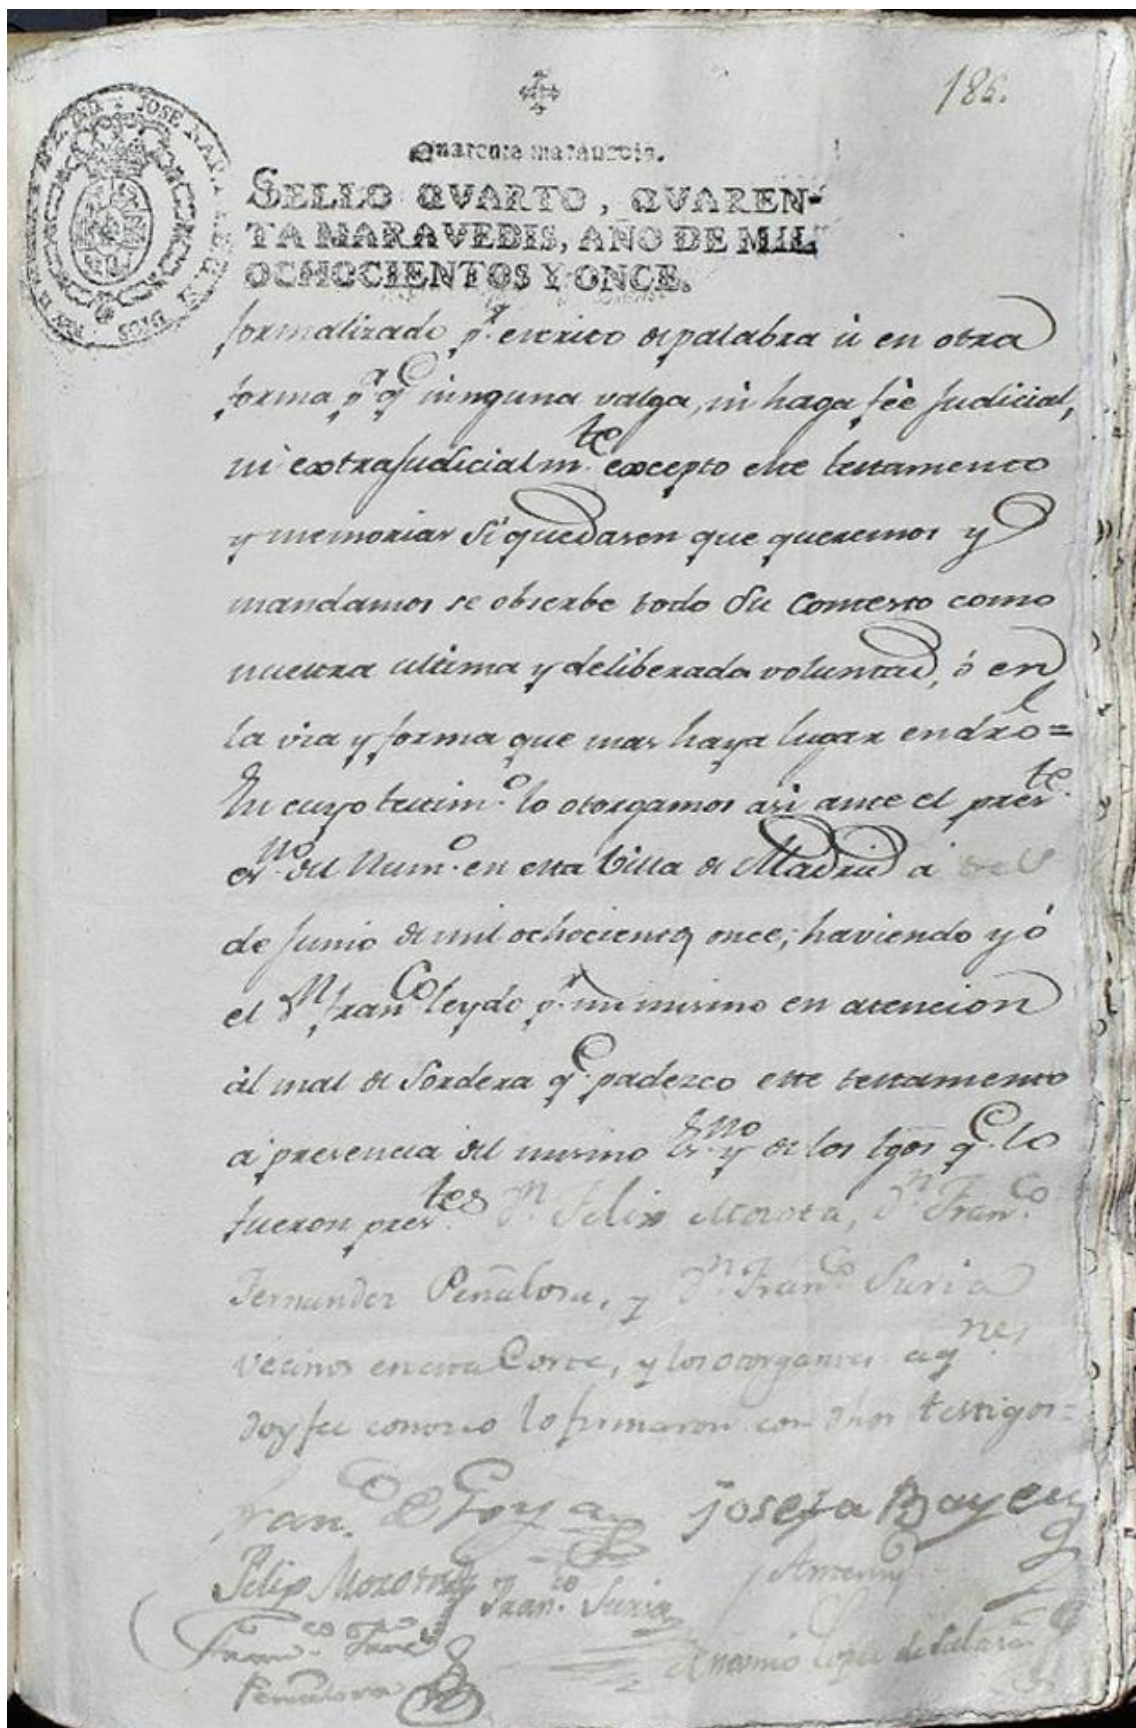 186.
Quarenta maravedis.
SELLO QVARTO, QVAREN-
TA MARAVEDIS, AÑO DE MIL
OCHOCIENTOS Y ONCE.
formalizado p.r escrito de palabra ù en otra
forma p.a q.e ninguna valga, ni haga fèe Judicial,
ni extrajudicialm.te excepto este testamento
y memorias si quedasen que queremos y
mandamos se obserbe todo su contesto como
nuestra ultima y deliberada voluntad, ó en
la via y forma que mas haya lugar en dro=
En cuyo testim.o lo otorgamos asi ante el pres.te
es.no del Num.o en esta Villa de Madrid à tres
de Junio de mil ochocientos once; haviendo yó
el D.n Fran.co leydo p.r mi mismo en atencion
àl mal de Sordera q.e padezco este testamento
à presencia del mismo Es.no y de los tgos q.e lo
fueron pres.tes D.n Felix Mozota, D.n Fran.co
Fernandez Peñalosa, y D.n Fran.co Suria
vecinos en esta Corte, y los otorgantes a q.nes
doy fee conozco lo firmaron con dhos testigos=
Fran.co de Goya Josefa Bayeu
Felix Mozota Fran.co Suria Antemi
Fran.co Fern.z
Peñalosa Antonio Lopez de Salazar